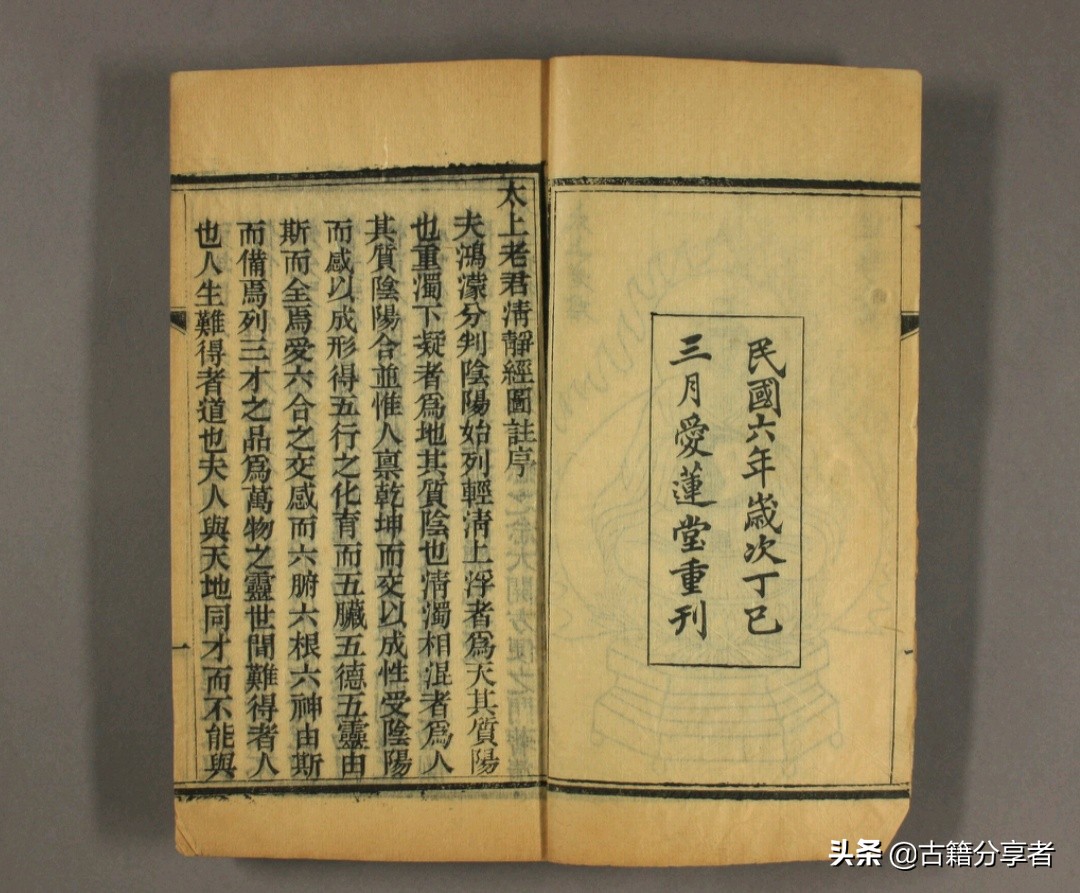 民國六年歲次丁巳
三月愛蓮堂重刊
太上老君清靜經圖註序
夫鴻濛分判陰陽始列輕清上浮者爲天其質陽
也重濁下凝者爲地其質陰也清濁相混者爲人
其質陰陽合並惟人禀乾坤而交以成性受陰陽
而感以成形得五行之化育而五臟五德五靈由
斯而全焉受六合之交感而六腑六根六神由斯
而備焉列三才之品爲萬物之靈世間難得者人
也人生難得者道也夫人與天地同才而不能與
一
头条 @古籍分享者